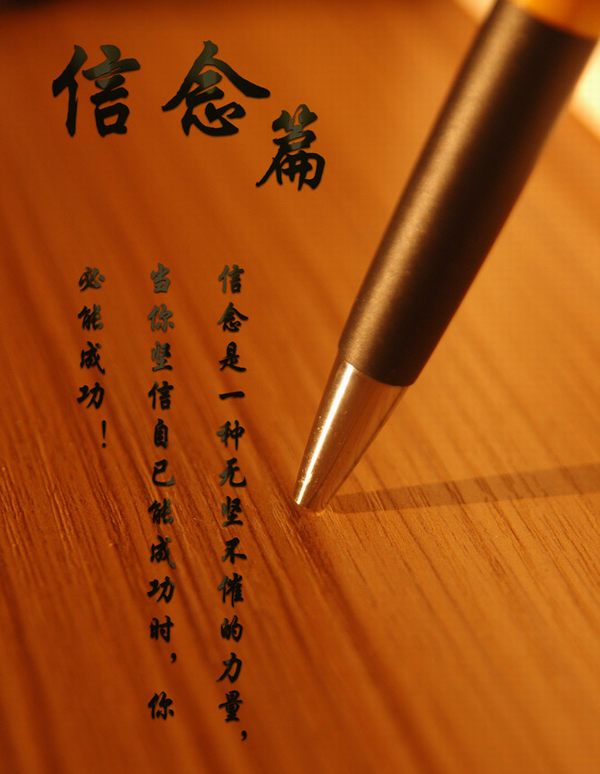 信念篇
信念是一种无坚不催的力量，
当你坚信自己能成功时，你
必能成功！